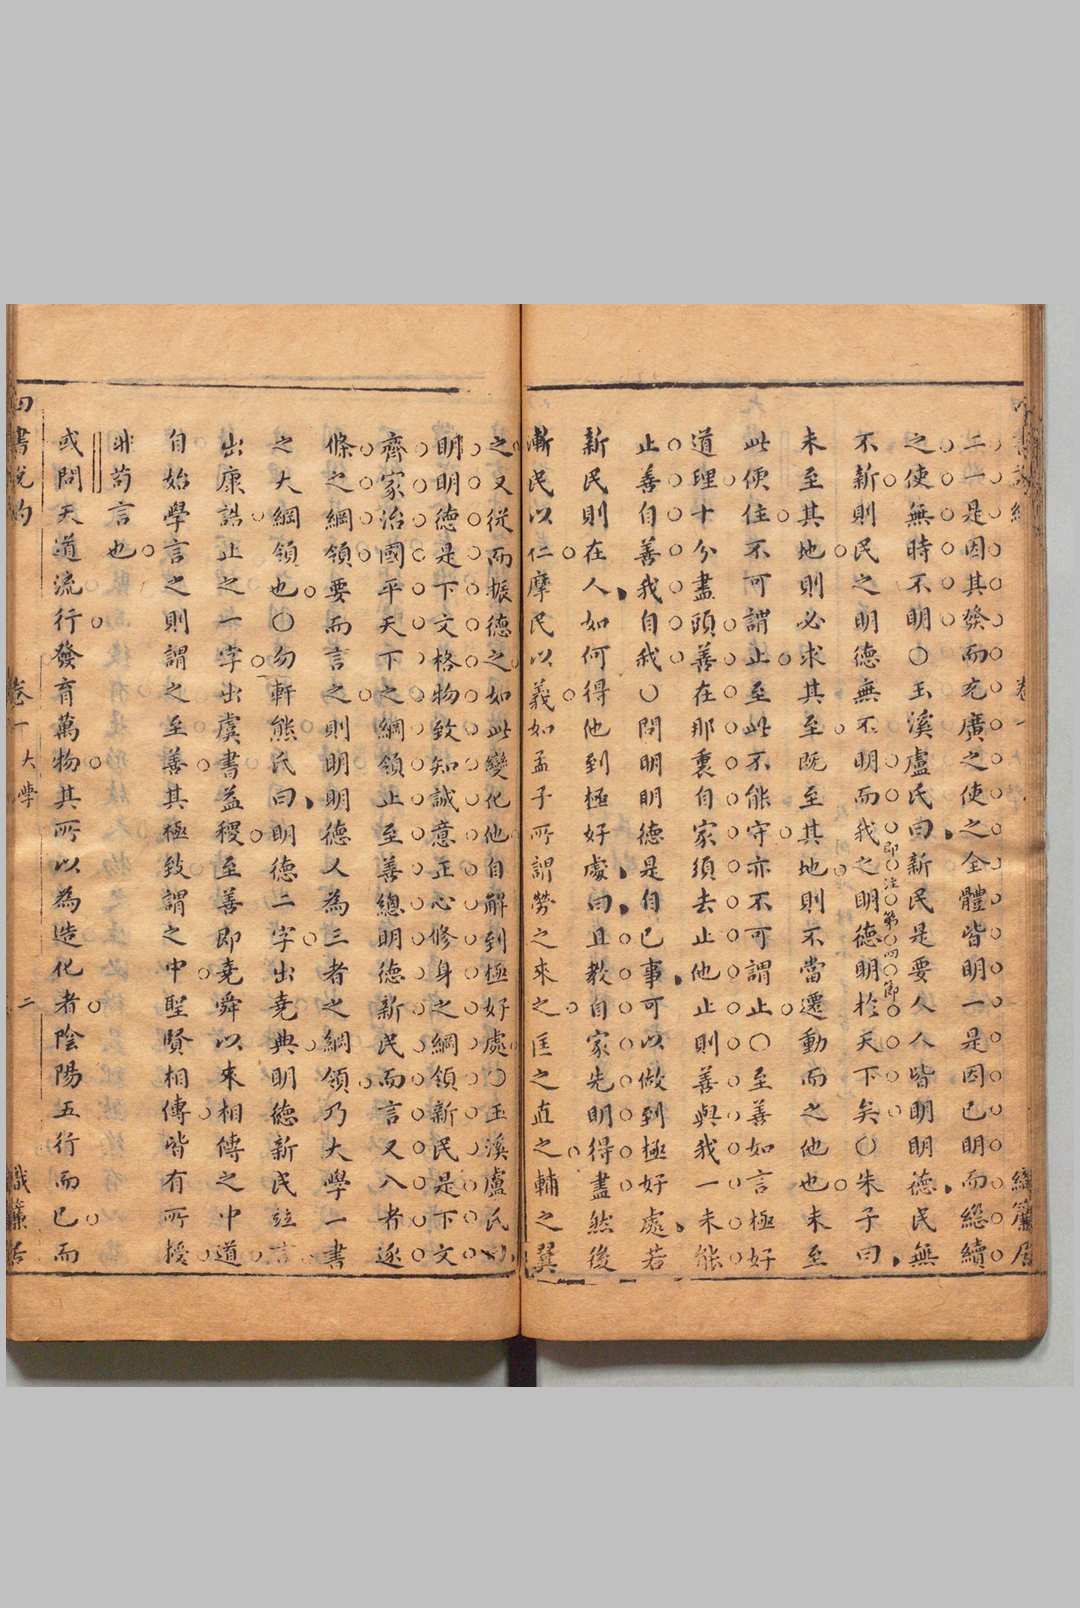 二一是因其發而充廣之使之全體皆明一是因已明而繼續
之使無時不明○玉溪盧氏曰新民是要人人皆明明德民無
不新則民之明德無不明而我之明德明於天下矣○朱子曰
即注第四節
未至其地則必求其至既至其地則不當遷動而之他也未至
此便住不可謂止至此不能守亦不可謂止○至善如言極好
道理十分盡頭善在那裏自家須去止他止則善與我一未能
止善自善我自我○問明明德是自已事可以做到極好處若
新民則在人如何得他到極好處曰且教自家先明得盡然後
漸民以仁摩民以義如孟子所謂勞之來之匡之直之輔之翼
之又從而振德之如此變化他自解到極好處○玉溪盧氏曰
明明德是下文格物致知誠意正心修身之綱領新民是下文
齊家治國平天下之綱領止至善總明德新民而言又八者逐
條之綱領要而言之則明明德人為三者之綱領乃大學一書
之大綱領也○勿軒熊氏曰明德二字出堯典明德新民竝言
出康誥止之一字出虞書益稷至善即堯舜以來相傳之中道
自始學言之則謂之至善其極致謂之中聖賢相傳皆有所授
非苟言也
或問天道流行發育萬物其所以為造化者陰陽五行而已而
四書說約 卷一 大學 二 織簾居